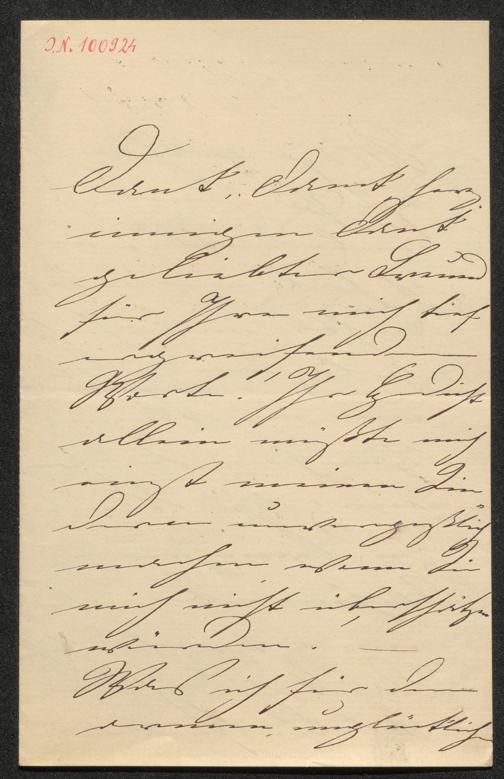 J.N. 100924
Dank, Dank, herz
innigen Dank
geliebter Freund
für Ihre mich tief
ergreifenden
Worte. Ihr Gedicht
allein müßte mich
einst meinen Kin
dern unvergeßlich
machen wenn Sie
mich nicht überschätzen
würden.
Was ich für den
armen, unglücklichen